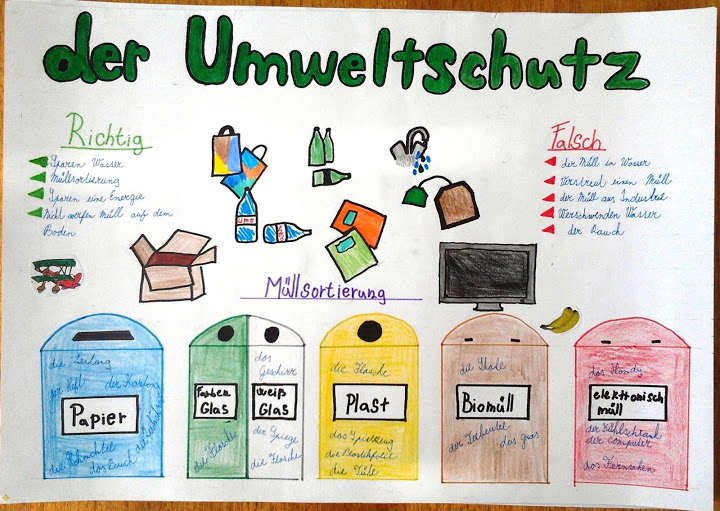 der Umweltschutz
Richtig
Sparen Wasser
Müllsortierung
Sparen eine Energie
Nicht werfen Müll auf dem
Boden
Falsch
der Müll in Wasser
Verstreut einen Müll
der Müll aus Industrie
Verschwenden Wasser
der Rauch
Müllsortierung
die Zeitung
das Heft der Karton
Papier
die Schachtel
das Buch
Farben
Glas
die Flasche
das
Geschirr
weiß
Glas
der Spiegel
die Flasche
die Flasche
Plast
das Spielzeug
die Plastikfolie
die Tüte
die Schale
Biomüll
der Teebeutel
das Gras
das Handy
elektronisch
müll
der Kühlschrank
der Computer
das Fernsehen